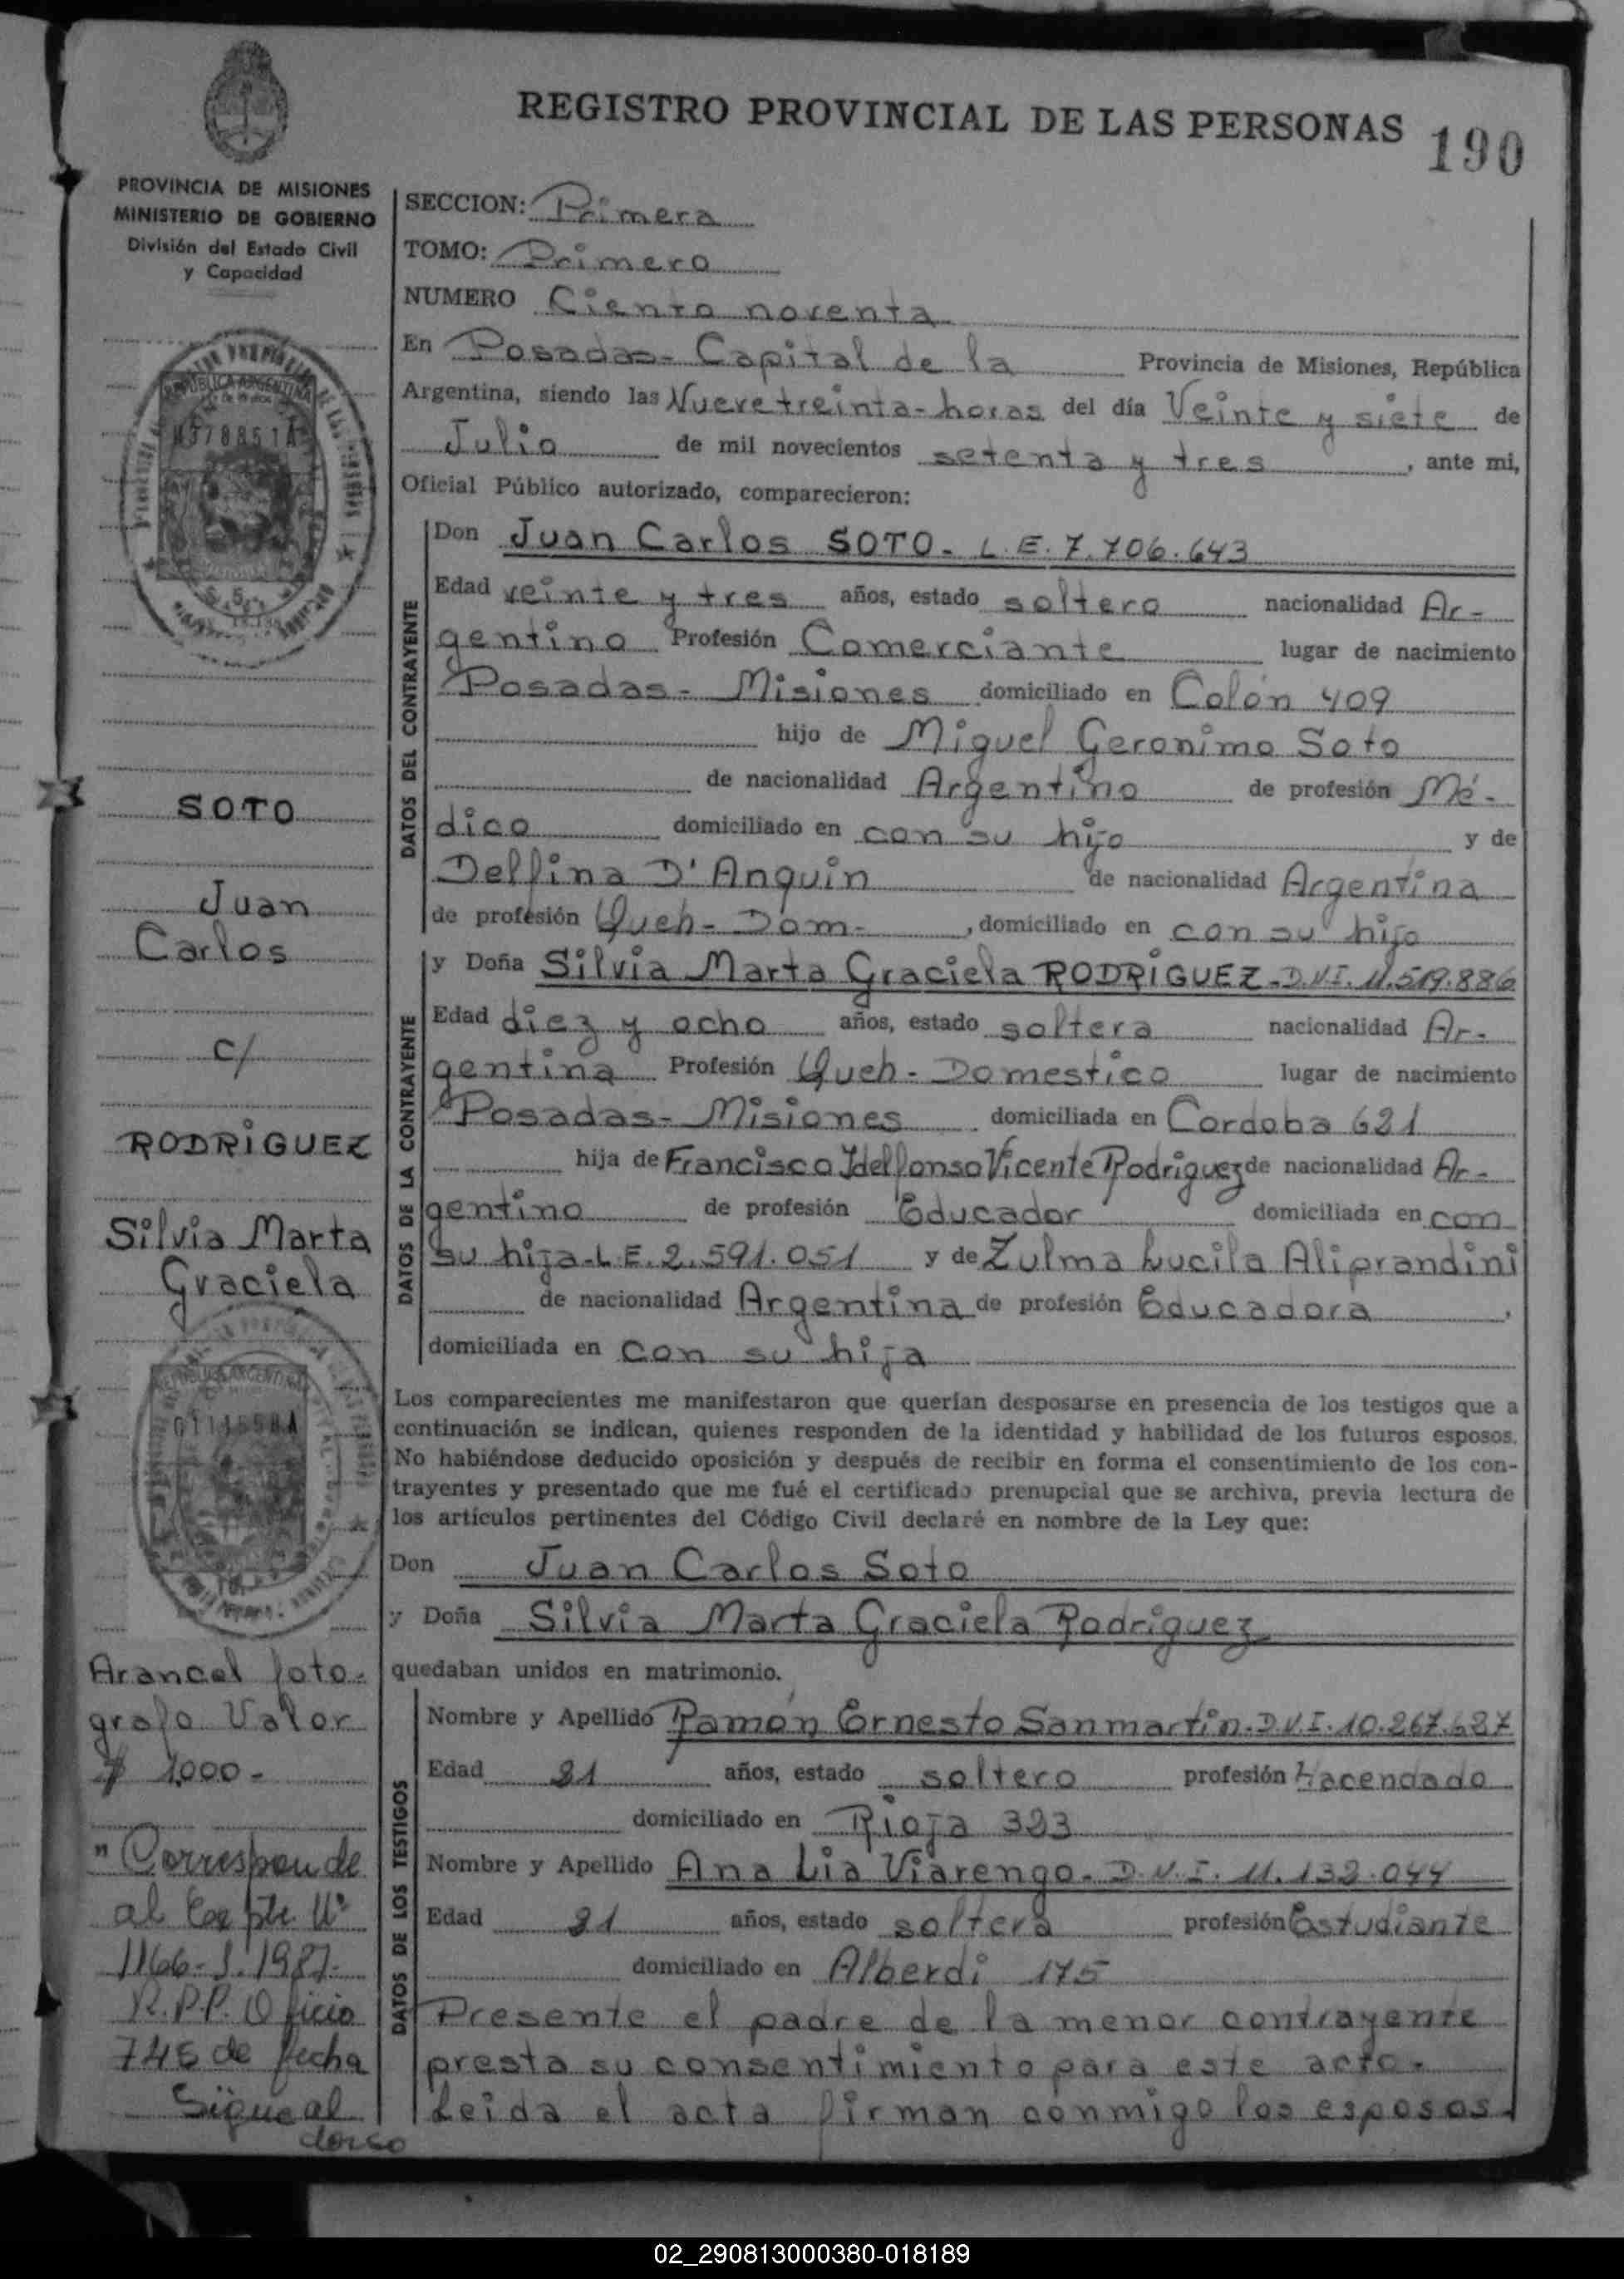 REGISTRO PROVINCIAL DE LAS PERSONAS
190
PROVINCIA DE MISIONES
MINISTERIO DE GOBIERNO
División del Estado Civil
y Capacidad
SECCION: Primera
TOMO: Primero
NUMERO Ciento noventa
En Posadas- Capital de la Provincia de Misiones, República
Argentina, siendo las Nueve treinta- horas del día Veinte y siete de
Julio de mil novecientos setenta y tres, ante mi,
Oficial Público autorizado, comparecieron:
DATOS DEL CONTRAYENTE
Don Juan Carlos SOTO- L.E. 7.706.643
Edad veinte y tres años, estado soltero nacionalidad Ar-
gentino Profesión Comerciante lugar de nacimiento
Posadas- Misiones domiciliado en Colón 409
hijo de Miguel Geronimo Soto
de nacionalidad Argentino de profesión Mé-
dico domiciliado en con su hijo y de
Delfina D'Anquin de nacionalidad Argentina
de profesión Queh- Dom-, domiciliado en con su hijo
DATOS DE LA CONTRAYENTE
y Doña Silvia Marta Graciela RODRIGUEZ- D.N.I. 11.519.886
Edad diez y ocho años, estado soltera nacionalidad Ar-
gentina Profesión Queh- Domestico lugar de nacimiento
Posadas- Misiones domiciliada en Cordoba 621
hija de Francisco Idelfonso Vicente Rodriguez de nacionalidad Ar-
gentino de profesión Educador domiciliada en con
su hija- L.E. 2.591.051 y de Zulma Lucila Aliprandini
de nacionalidad Argentina de profesión Educadora,
domiciliada en con su hija
Los comparecientes me manifestaron que querían desposarse en presencia de los testigos que a
continuación se indican, quienes responden de la identidad y habilidad de los futuros esposos.
No habiéndose deducido oposición y después de recibir en forma el consentimiento de los con-
trayentes y presentado que me fué el certificado prenupcial que se archiva, previa lectura de
los artículos pertinentes del Código Civil declaré en nombre de la Ley que:
Don Juan Carlos Soto
y Doña Silvia Marta Graciela Rodriguez
quedaban unidos en matrimonio.
DATOS DE LOS TESTIGOS
Nombre y Apellido Ramón Ernesto Sanmartín- D.N.I. 10.267.687
Edad 21 años, estado soltero profesión Hacendado
domiciliado en Rioja 323
Nombre y Apellido Ana Lia Viarengo- D.N.I. 11.132.044
Edad 21 años, estado soltera profesión Estudiante
domiciliado en Alberdi 175
Presente el padre de la menor contrayente
presta su consentimiento para este acto-
Leida el acta firman conmigo los esposos
REPUBLICA ARGENTINA
SOTO
Juan
Carlos
c/
RODRIGUEZ
Silvia Marta
Graciela
REPUBLICA ARGENTINA
Arancel foto-
grafo Valor
$ 1,000-
"Corresponde
al Expte. Nº
1166-S-1987-
R.P.P. Oficio
745 de fecha
Sigue al
dorso
02_290813000380-018189